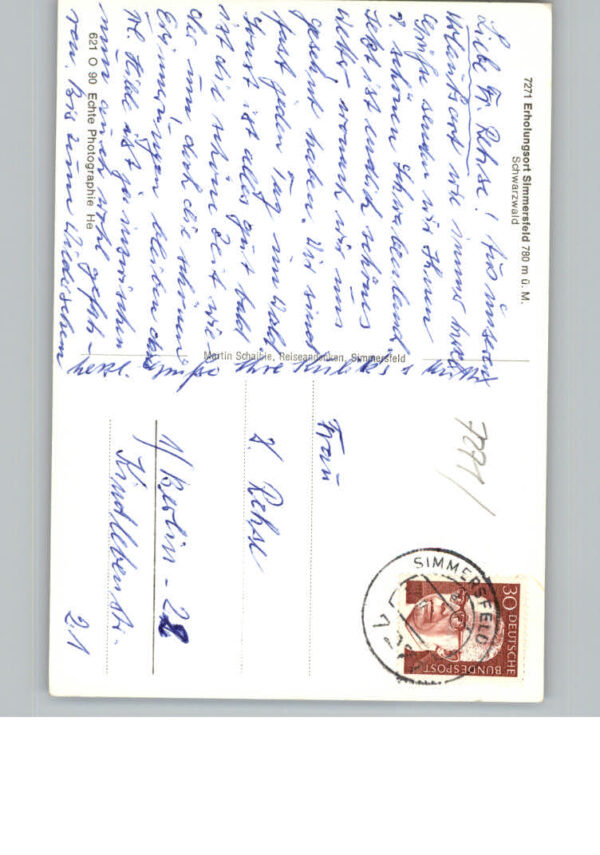 7271 Erholungsort Simmersfeld 780 m ü. M.
Schwarzwald
Liebe Fr. Rehse! Aus unserem
Urlaubsort wie immer
Grüße senden wir Ihnen
schönen Schwabenland.
Jetzt ist endlich schönes
Wetter, wonach wir uns
gesehnt haben. Wir sind
fast jeden Tag im Wald.
Sonst ist alles gut bald
ist die schöne Zeit wie-
der um doch die schönen
Erinnerungen bleiben
ist ja inzwischen
nun auch wohl gefah-
ren. Bis zum Wiedersehen
herzl. Grüße Ihre
621 O 90 Echte Photographie He
Martin Schaible, Reiseandenken, Simmersfeld
7271/
Frau
J. Rehse
1/Berlin-28
21
SIMMERSFELD
30 DEUTSCHE
BUNDESPOST